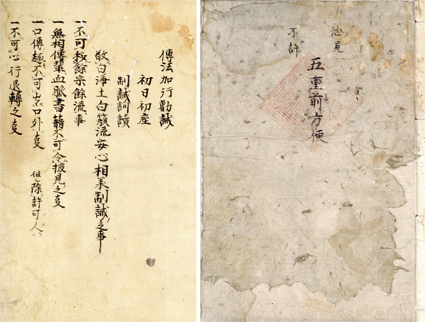 見
五重前方便
不許
傳法加行勸誡
初日初座
制誡
敬白 白簱流安心相承制誡之事
一不可授諸宗餘流事
一無相傳輩血脈書籍不可令披見之事
一口傳趣不可出口外事 但除許可人
一不可心行退轉之事